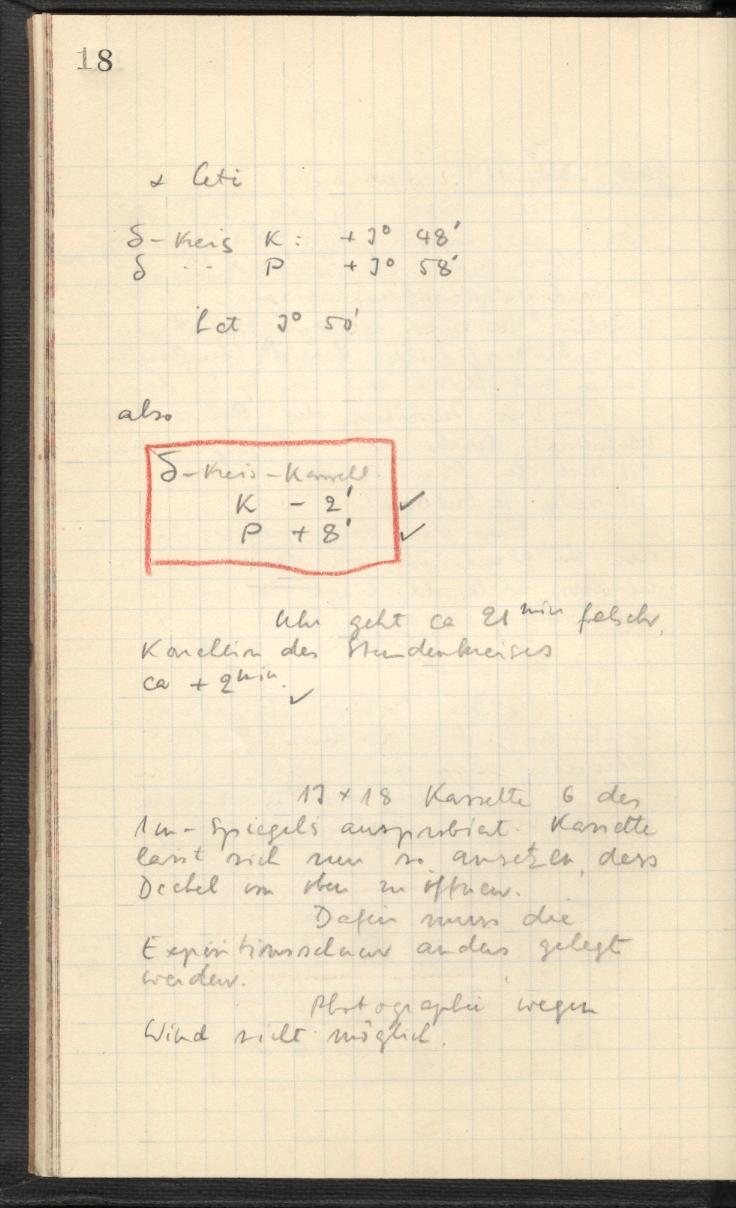 18
α Ceti
δ-Kreis K: +3° 48'
δ " P +3° 58'
Soll 3° 50'
also
δ-Kreis-Korrekt.
K - 2' ✓
P + 8' ✓
Uhr geht ca 21 min falsch,
Korrektion des Stundenkreises
ca + 2 min. ✓
13 × 18 Kassette 6 des
1m-Spiegels ausprobiert. Kassette
lässt sich nun so ansetzen, dass
Deckel von oben zu öffnen.
Dafür muss die
Expositionsschnur anders gelegt
werden.
Photographie wegen
Wind nicht möglich.